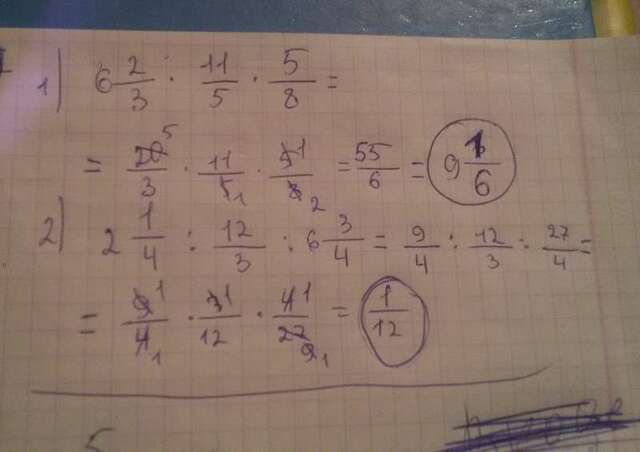 1) 6 2/3 · 11/5 · 5/8 =
= 20/3 · 11/5 · 5/8 = 55/6 = 9 1/6
2) 2 1/4 : 12/3 : 6 3/4 = 9/4 : 12/3 : 27/4 =
= 9/4 · 3/12 · 4/27 = 1/12
5